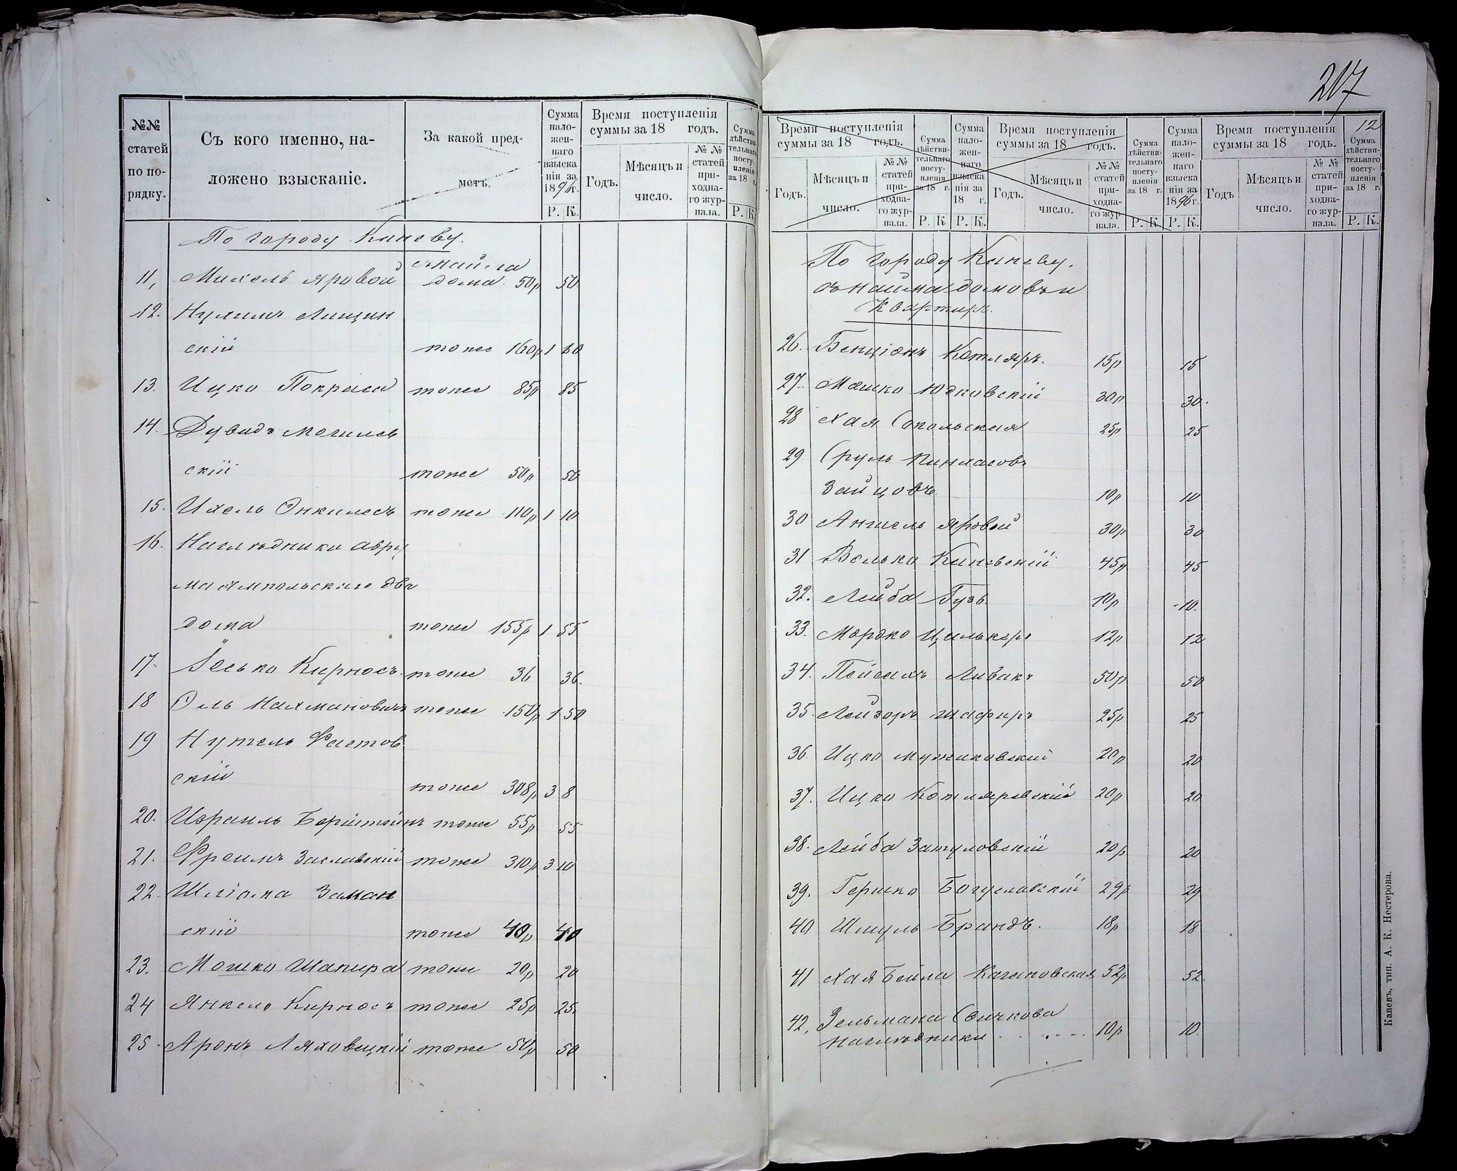 207
12
№№ статей по по- рядку.
Съ кого именно, на-
ложено взысканіе.
За какой пред-
метъ.
Сумма нало- жен- наго взыска нія за 1896 г.
Р. К.
Время поступленія
суммы за 18 годъ.
Годъ.
Мѣсяцъ и число.
№№ статей при- ходна- го жур- нала.
Сумма дѣйстви- тельнаго посту- пленія за 18 г.
Р. К.
По городу Каневу.
11, Михель Яровой съ найма дома 50р 50
12. Нухимъ Лищин
скій тоже 160р 1 60
13. Ицко Покраса тоже 85р 85
14. Дувидъ Могилев
скій тоже 50р 50
15. Ихель тоже 110р 1 10
16. Наслѣдники Авру
ма Ямпольскаго два
дома тоже 155р 1 55
17. Іосько Кирносъ тоже 36 36.
18 Оль Нахмановичъ тоже 150р 1 50
19 Нутель Фастов
скій тоже 308р 3 8
20. Израиль Борштейнъ тоже 55р 55
21. Фроимъ Заславскій тоже 310р 3 10
22. Шліома Заман
скій тоже 40р 40
23. Мошко Шапира тоже 20р 20
24 Янкель Кирносъ тоже 25р 25.
25. Аронъ Ляховецкій тоже 50р 50
Время поступленія
суммы за 18 годъ.
Годъ.
Мѣсяцъ и число.
№№ статей при- ходна- го жур- нала.
Сумма дѣйстви- тельнаго посту- пленія за 18 г.
Р. К.
Сумма нало- жен- наго взыска- нія за 18 г.
Р. К.
Время поступленія
суммы за 18 годъ.
Годъ.
Мѣсяцъ и число.
№№ статей при- ходна- го жур- нала.
Сумма дѣйстви- тельнаго посту- пленія за 18 г.
Р. К.
Сумма нало- жен- наго взыска- нія за 1896 г.
Р. К.
Время поступленія
суммы за 18 годъ.
Годъ.
Мѣсяцъ и число.
№№ статей при- ходна- го жур- нала.
Сумма дѣйстви- тельнаго посту- пленія за 18 г.
Р. К.
По городу Каневу.
съ найма домовъ и
квартиръ.
26. Бенціонъ Котляръ. 15р 15
27. Мошко Юдковскій 30р 30.
28 Хая Сокольская 25р 25
29 Сруль Пинхасовъ
Зайцовъ 10р 10
30 Ангель Яровой 30р 30
31 Волько Каневскій 45р 45
32. Лейба Гузь 10р 10.
33. Мордко 12р 12
34. Пейсахъ Ливакъ 50р 50
35. Лейзоръ Шафиръ 25р 25
36. Ицко Мужиковскій 20р 20
37. Ицко Котляревскій 20р 20
38. Лейба Затуловскій 20р 20
39. Гершко Богуславскій 29р 29
40 Шмуль Брандъ. 18р 18
41 Хая Бейла Кагановская 52р 52.
42. Зельмана Сичкова
наслѣдники 10р 10.
Каневъ, тип. А. К. Нестерова.